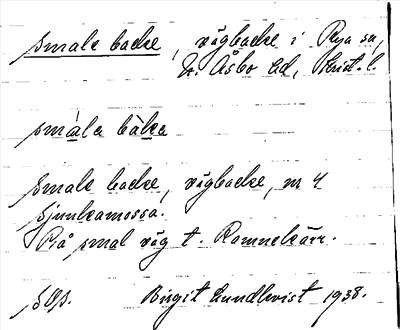 smale backe, vägbacke i Rya sn,
N. Åsbo hd, Krist. l.
smála bàka
smale backe, vägbacke, m 4
Sjunkamossa.
På smal väg t. Ramnekärr.
Birgit Lundkvist 1938.